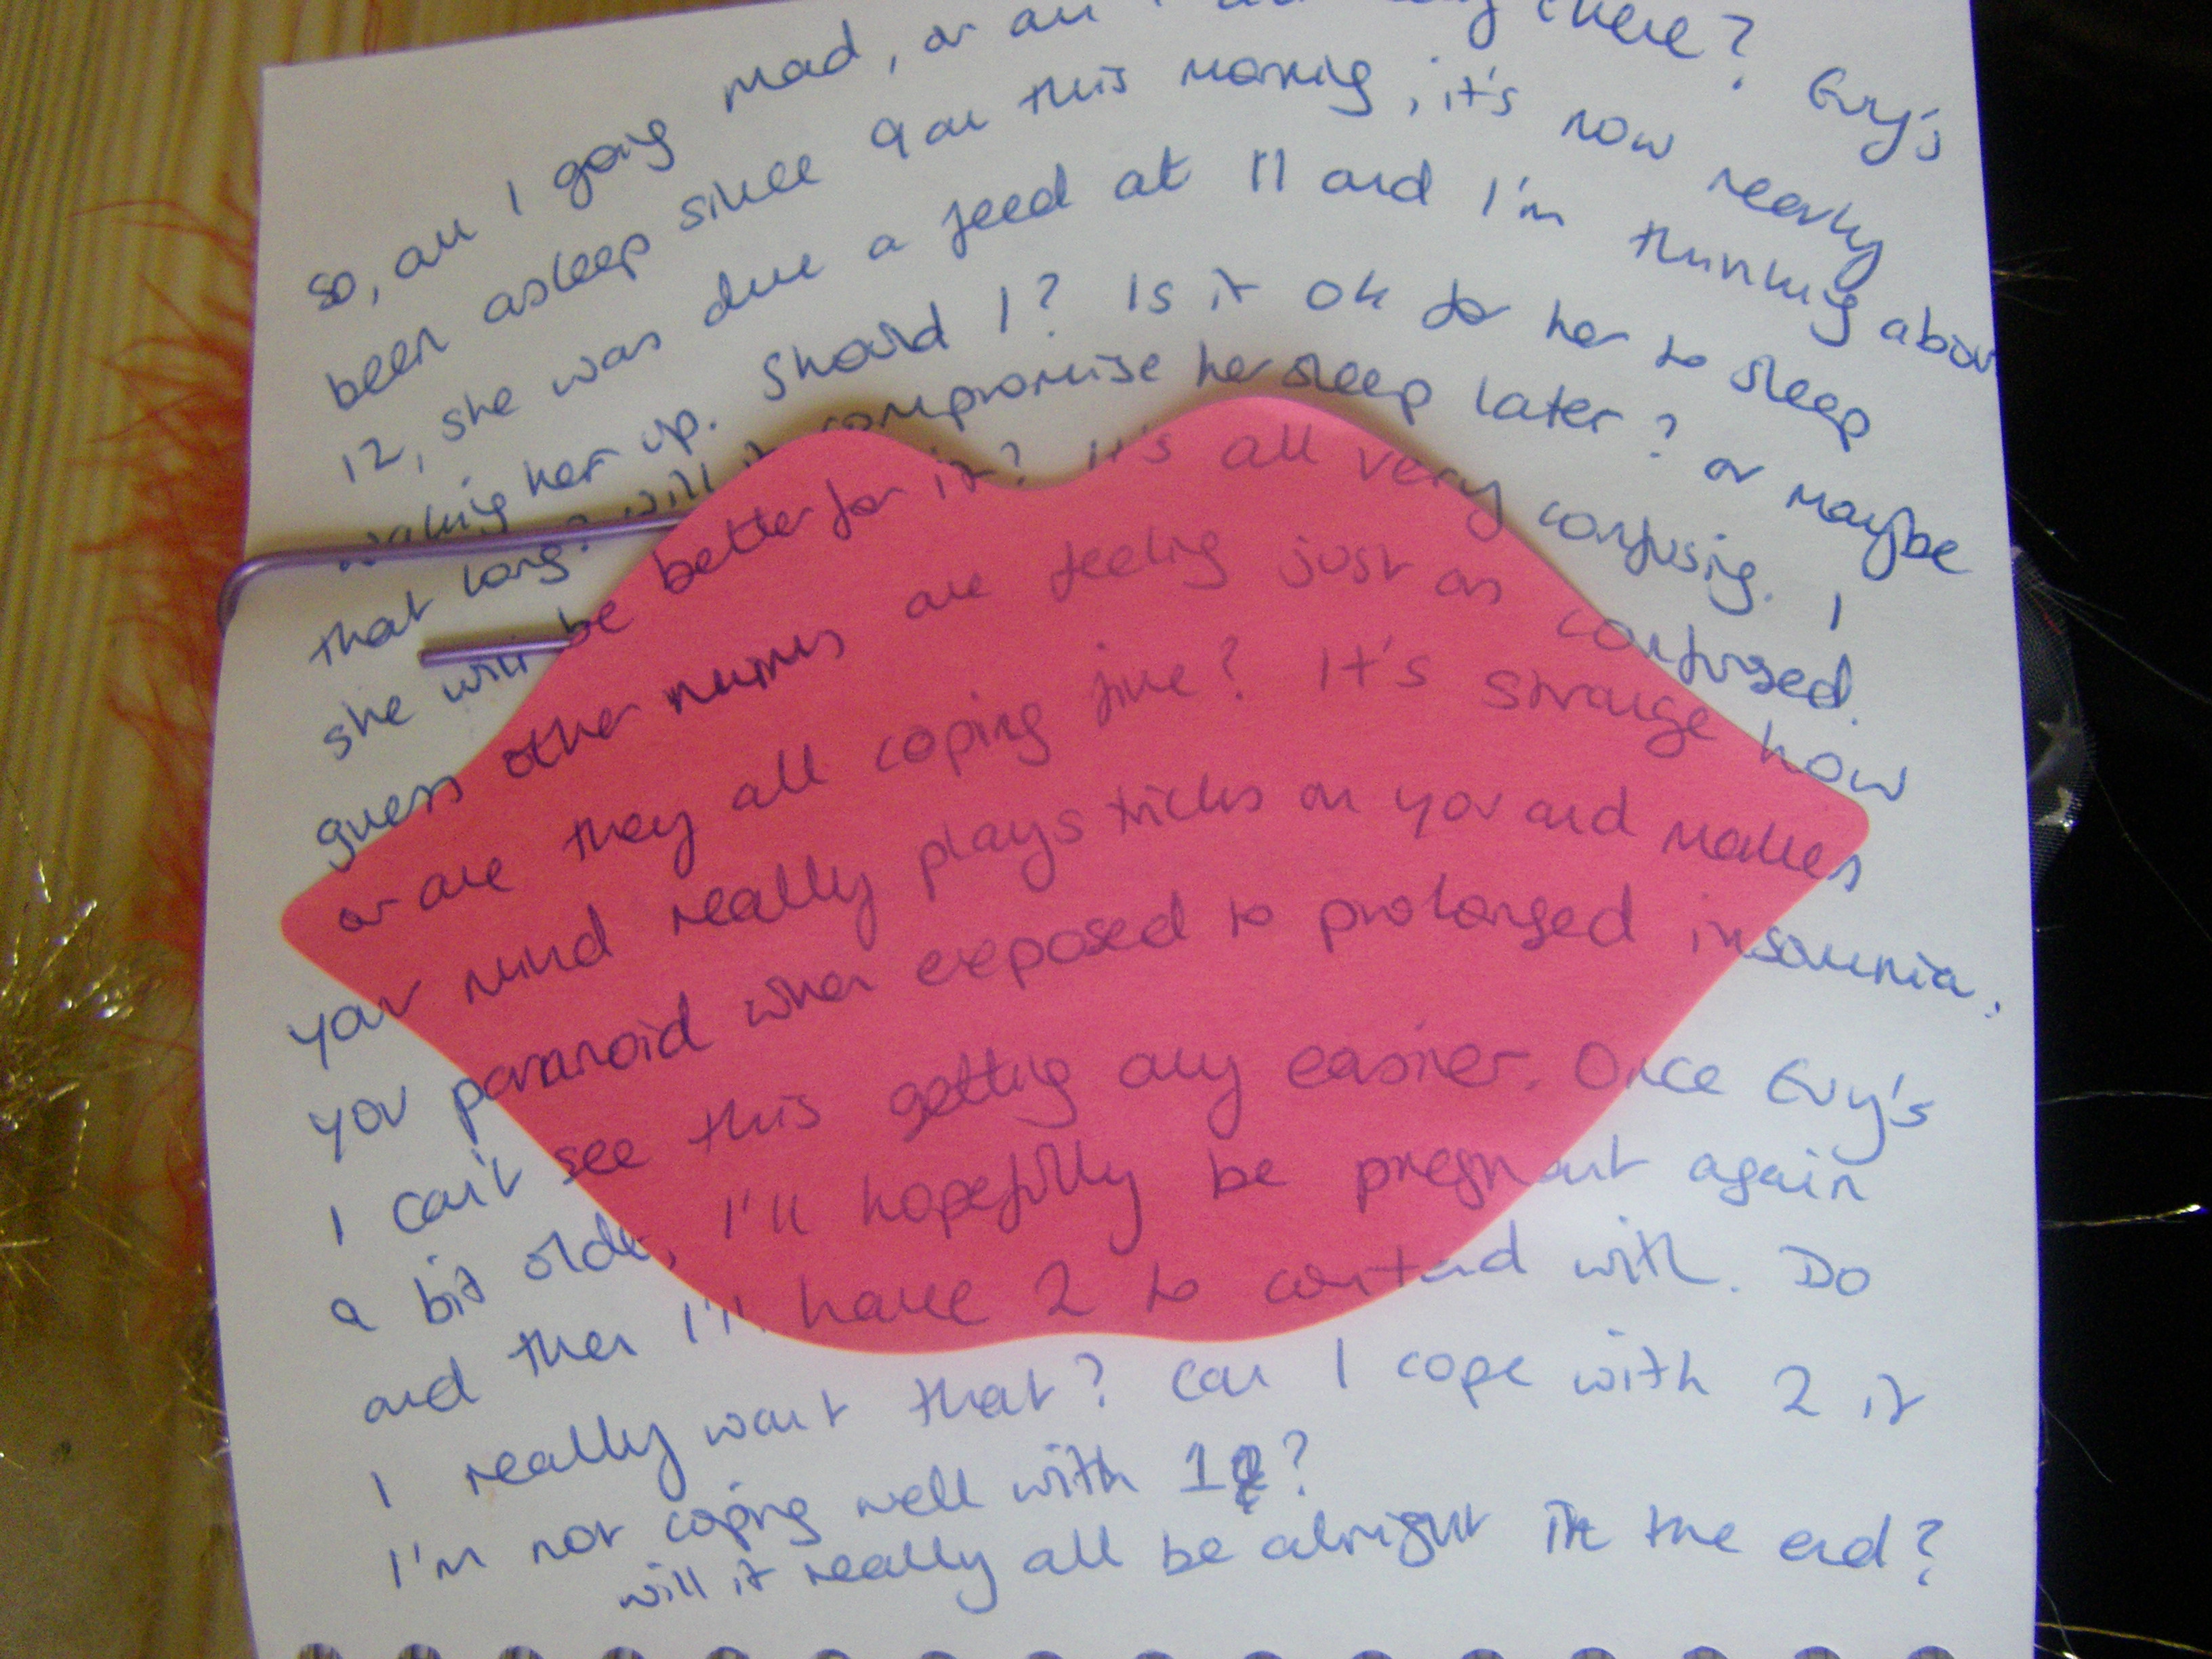 So, am I going mad, or am I already there? Evy's
been asleep since 9am this morning, it's now nearly
12, she was due a feed at 11 and I'm thinking about
waking her up. Should I? Is it ok for her to sleep
that long? will it compromise her sleep later? or maybe
she will be better for it? It's all very confusing. I
guess other mums are feeling just as confused.
or are they all coping fine? It's strange how
your mind really plays tricks on you and makes
you paranoid when exposed to prolonged insomnia.
I can't see this getting any easier. Once Evy's
a bit older, I'll hopefully be pregnant again
and then I'll have 2 to contend with. Do
I really want that? Can I cope with 2 if
I'm not coping well with 1?
will it really all be alright in the end?